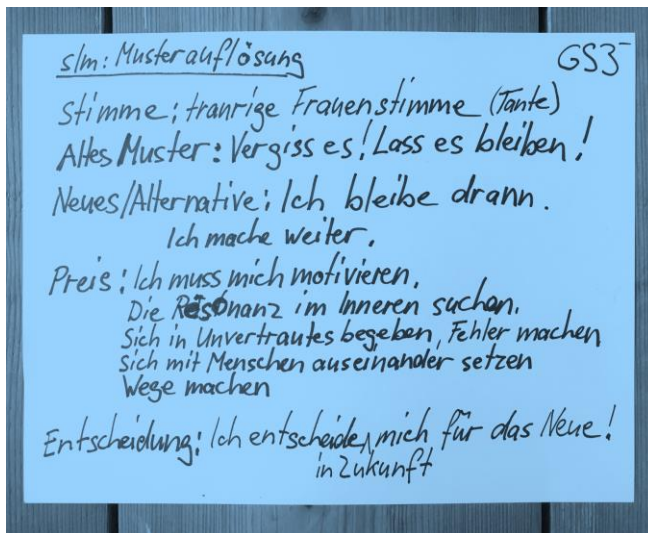 slm: Musterauflösung GS35
Stimme: tranrige Frauenstimme (Tante)
Altes Muster: Vergiss es! Lass es bleiben!
Neues/Alternative: Ich bleibe drann.
Ich mache weiter.
Preis: Ich muss mich motivieren.
Die Resonanz im Inneren suchen.
Sich in Unvertrautes begeben, Fehler machen
Sich mit Menschen auseinander setzen
Wege machen
Entscheidung: Ich entscheide mich für das Neue!
in Zukunft